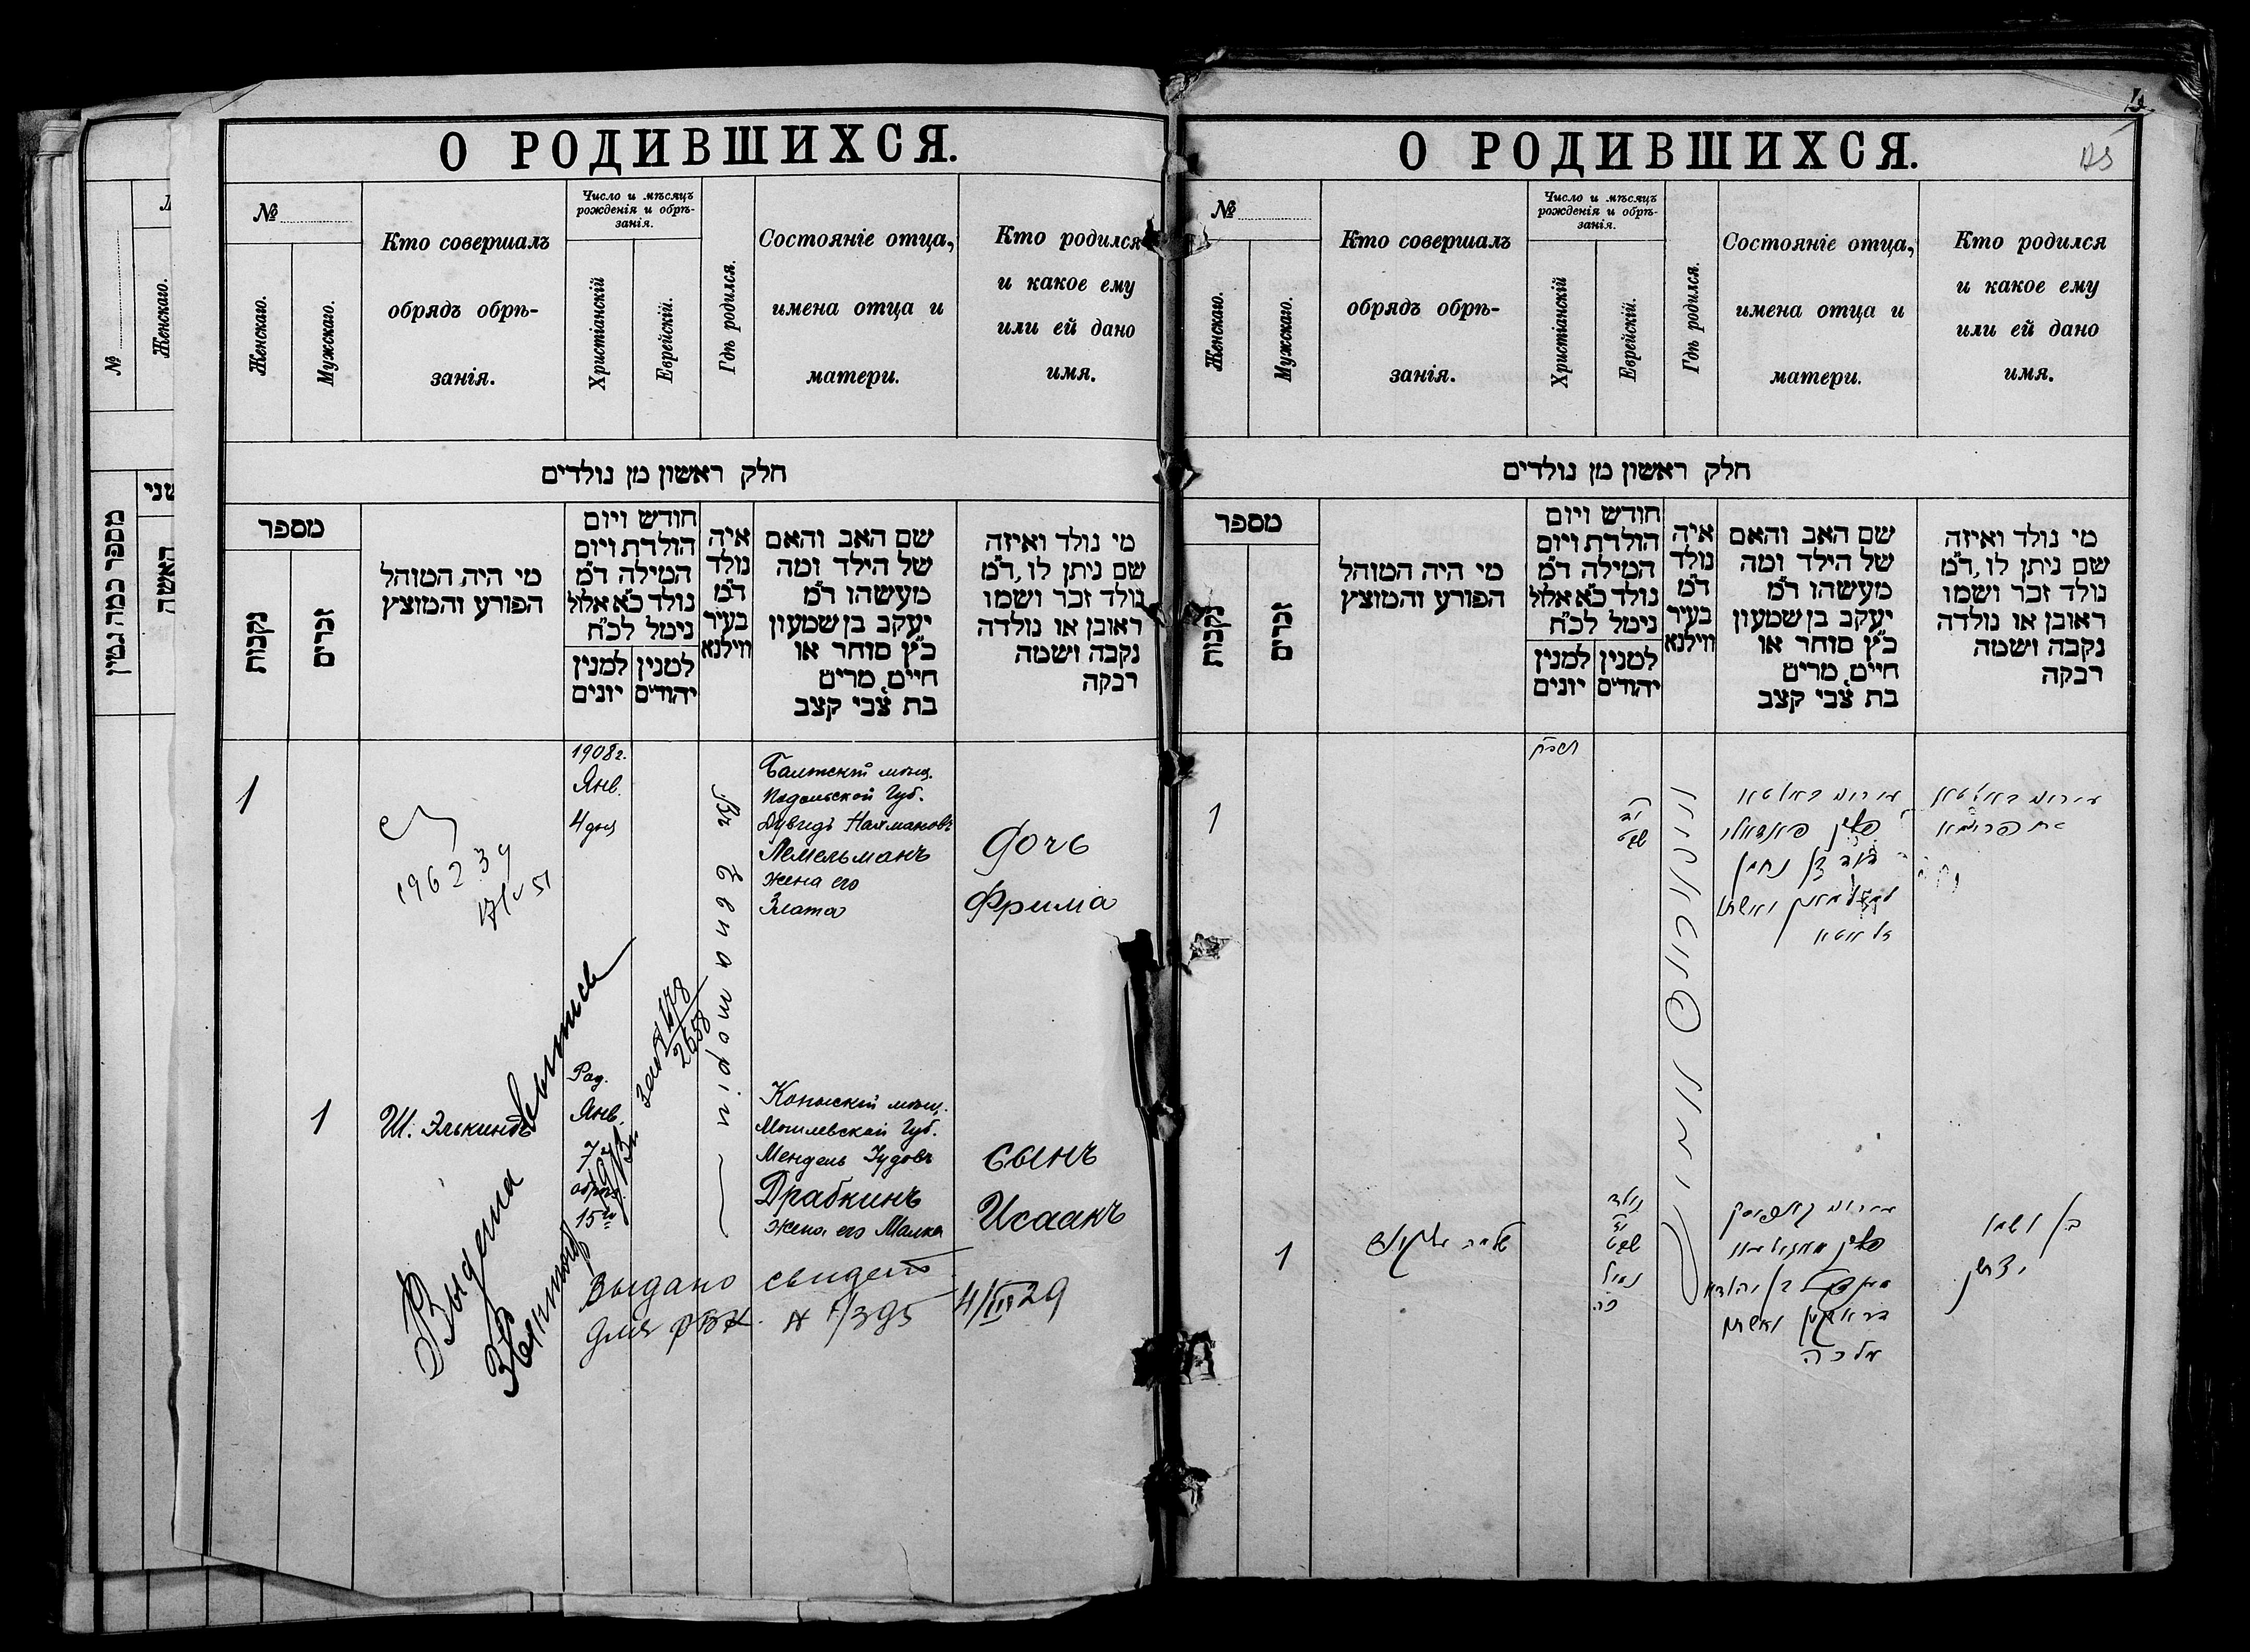 О РОДИВШИХСЯ.
№
Женскаго.
Мужскаго.
Кто совершалъ
обрядъ обрѣ-
занія.
Число и мѣсяцъ
рожденія и обрѣ-
занія.
Христіанскій
Еврейскій.
Гдѣ родился.
Состояніе отца,
имена отца и
матери.
Кто родился
и какое ему
или ей дано
имя.
חלק ראשון מן נולדים
מספר
נקבות
זכרים
מי היה המוהל
הפורע והמוצץ
חודש ויום
הולדת ויום
המילה ד״מ
נולד כ״א אלול
נימל לכ״ח
למנין
יונים
למנין
יהודים
איה
נולד
ד״מ
בעיר
ווילנא
שם האב והאם
של הילד ומה
מעשהו ד״מ
יעקב בן שמעון
כ״ץ סוחר או
חיים, מרים
בת צבי קצב
מי נולד ואיזה
שם ניתן לו, ד״מ
נולד זכר ושמו
ראובן או נולדה
נקבה ושמה
רבקה
1
1908 г.
Янв.
4 дня
Въ Евпаторіи
Балтскій мѣщ.
Подольской Губ.
Дувидъ Нахмановъ
Лемельманъ
жена его
Злата
Дочь
Фрима
196239
1
Ш. Элькиндъ
Янв.
7
15го
Копысскій мѣщ.
Могилевской Губ.
Мендель Іудовъ
Драбкинъ
жена его Малка
Сынъ
Исаакъ
Выдана выпись
2658
Выдано свидет
для 4/III 29
№
Женскаго.
מספר כמה גטין
שני
האשה
О РОДИВШИХСЯ.
4
№
Женскаго.
Мужскаго.
Кто совершалъ
обрядъ обрѣ-
занія.
Число и мѣсяцъ
рожденія и обрѣ-
занія.
Христіанскій
Еврейскій.
Гдѣ родился.
Состояніе отца,
имена отца и
матери.
Кто родился
и какое ему
или ей дано
имя.
חלק ראשון מן נולדים
מספר
נקבות
זכרים
מי היה המוהל
הפורע והמוצץ
חודש ויום
הולדת ויום
המילה ד״מ
נולד כ״א אלול
נימל לכ״ח
למנין
יונים
למנין
יהודים
איה
נולד
ד״מ
בעיר
ווילנא
שם האב והאם
של הילד ומה
מעשהו ד״מ
יעקב בן שמעון
כ״ץ סוחר או
חיים, מרים
בת צבי קצב
מי נולד ואיזה
שם ניתן לו, ד״מ
נולד זכר ושמו
ראובן או נולדה
נקבה ושמה
רבקה
1
שבט
פלך פאדאלי
דוד בן נחמן
ואשתו
זלאטא
1
שלמה עלקינד
נולד
שבט
נימול
פלך
מענדל בן יהודא
דראבקין ואשתו
מלכה
בן ושמו
יצחק